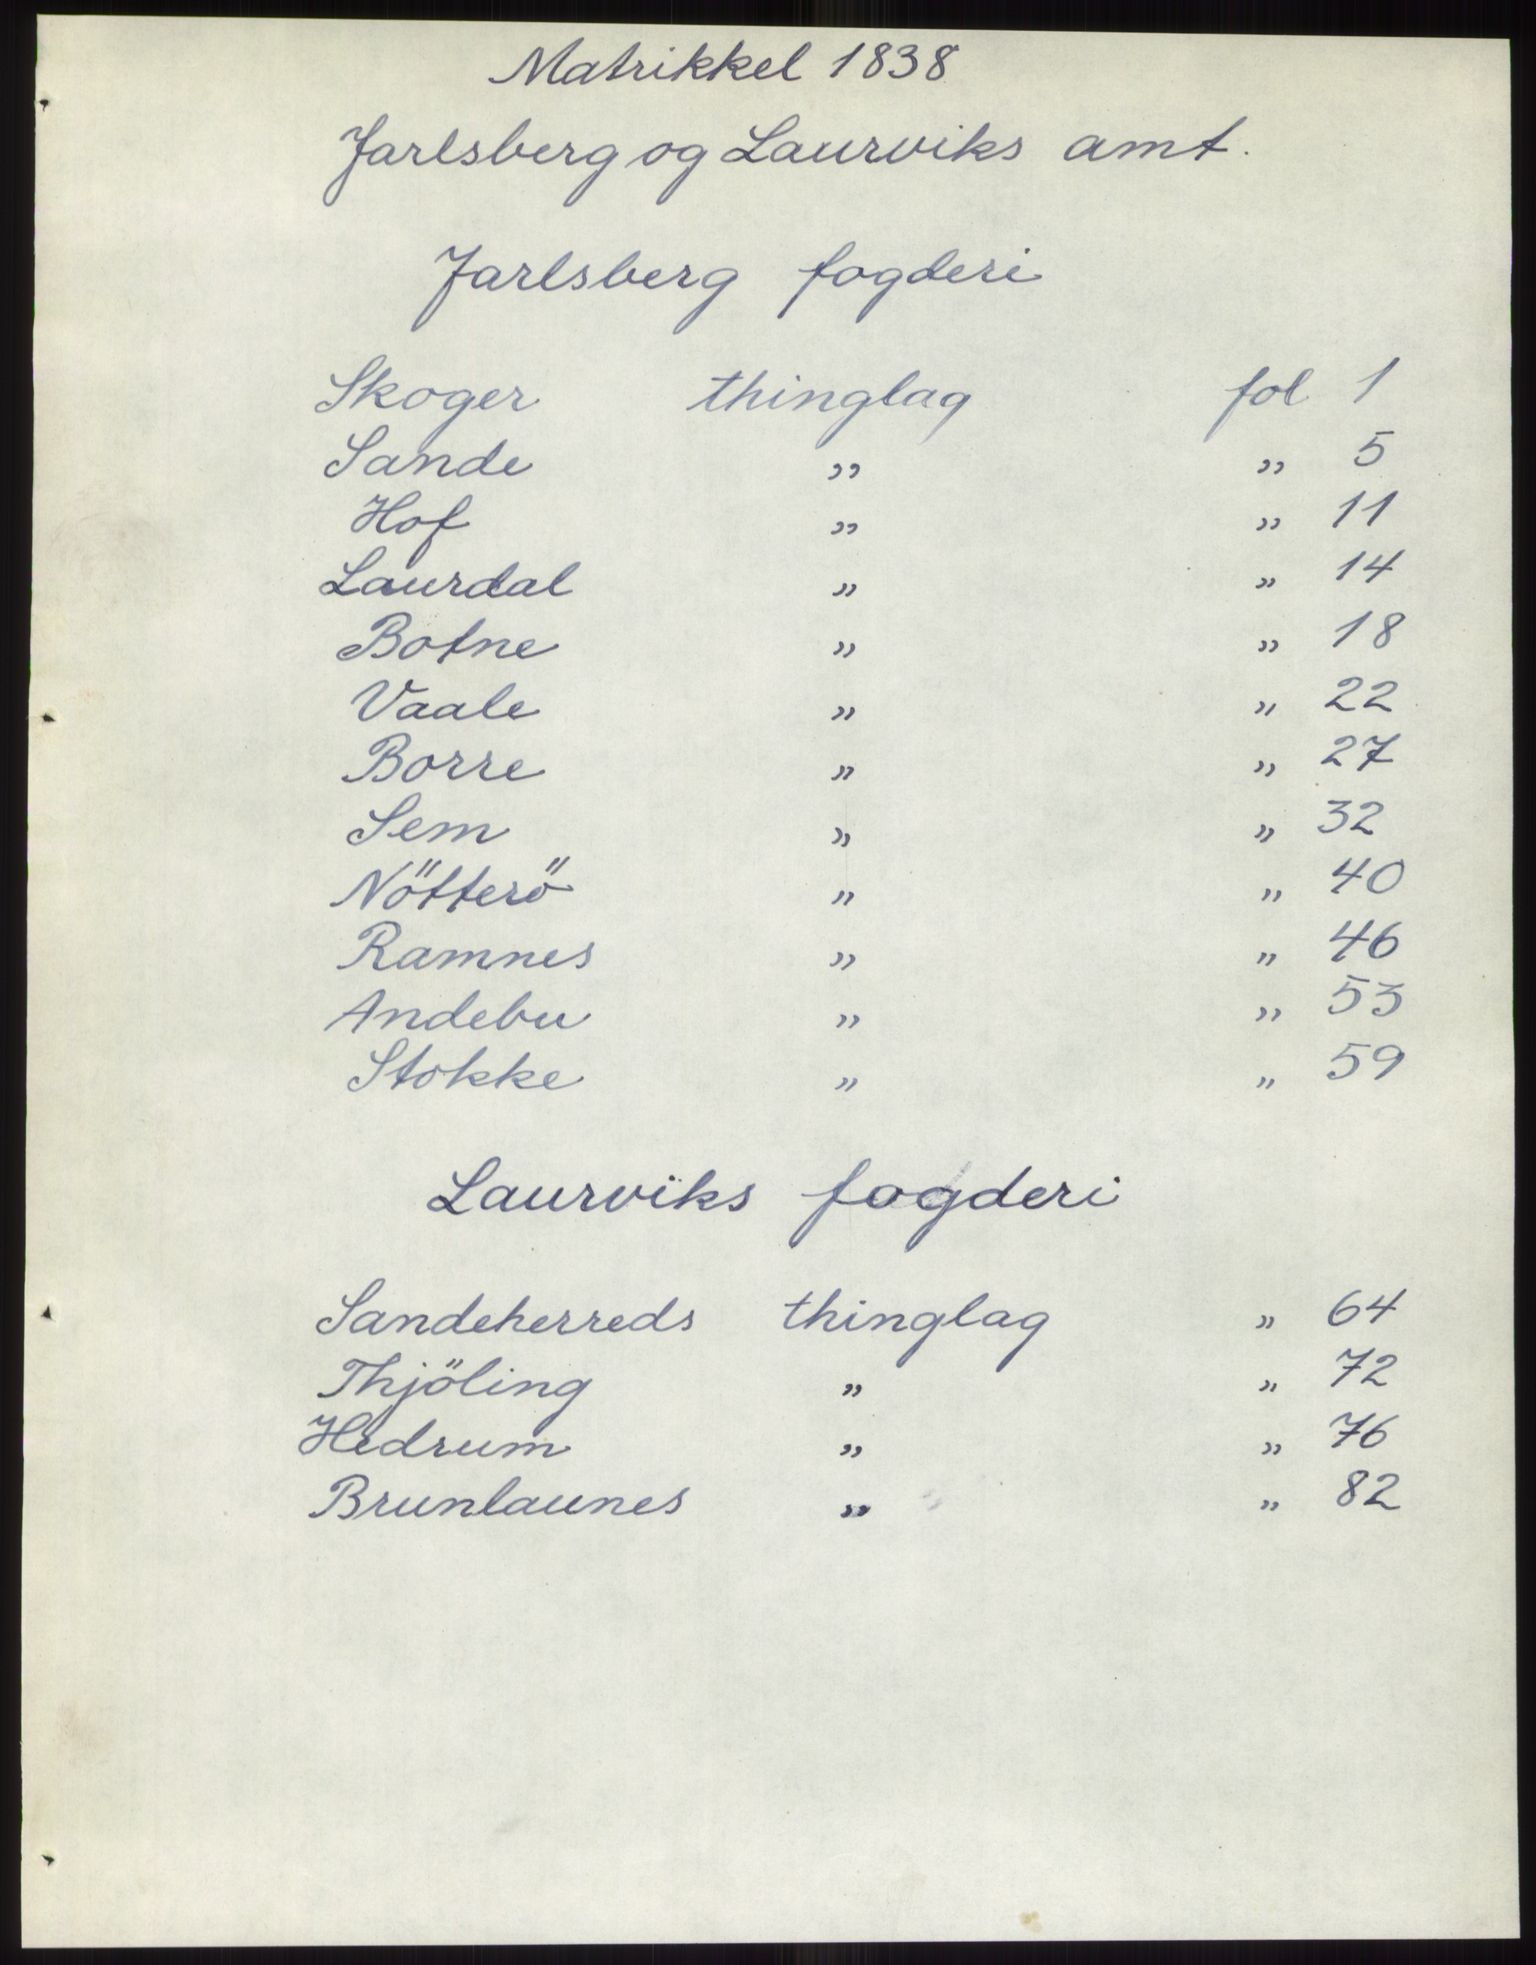 Matrikkel 1838
Jarlsberg og Laurviks amt.
Jarlsberg fogderi
Skoger thinglag fol 1
Sande " " 5
Hof " " 11
Laurdal " " 14
Botne " " 18
Vaale " " 22
Borre " " 27
Sem " " 32
Nötterö " " 40
Ramnes " " 46
Andebu " " 53
Stokke " " 59
Laurviks fogderi
Sandeherreds thinglag " 64
Thjöling " " 72
Hedrum " " 76
Brunlaunes " " 82